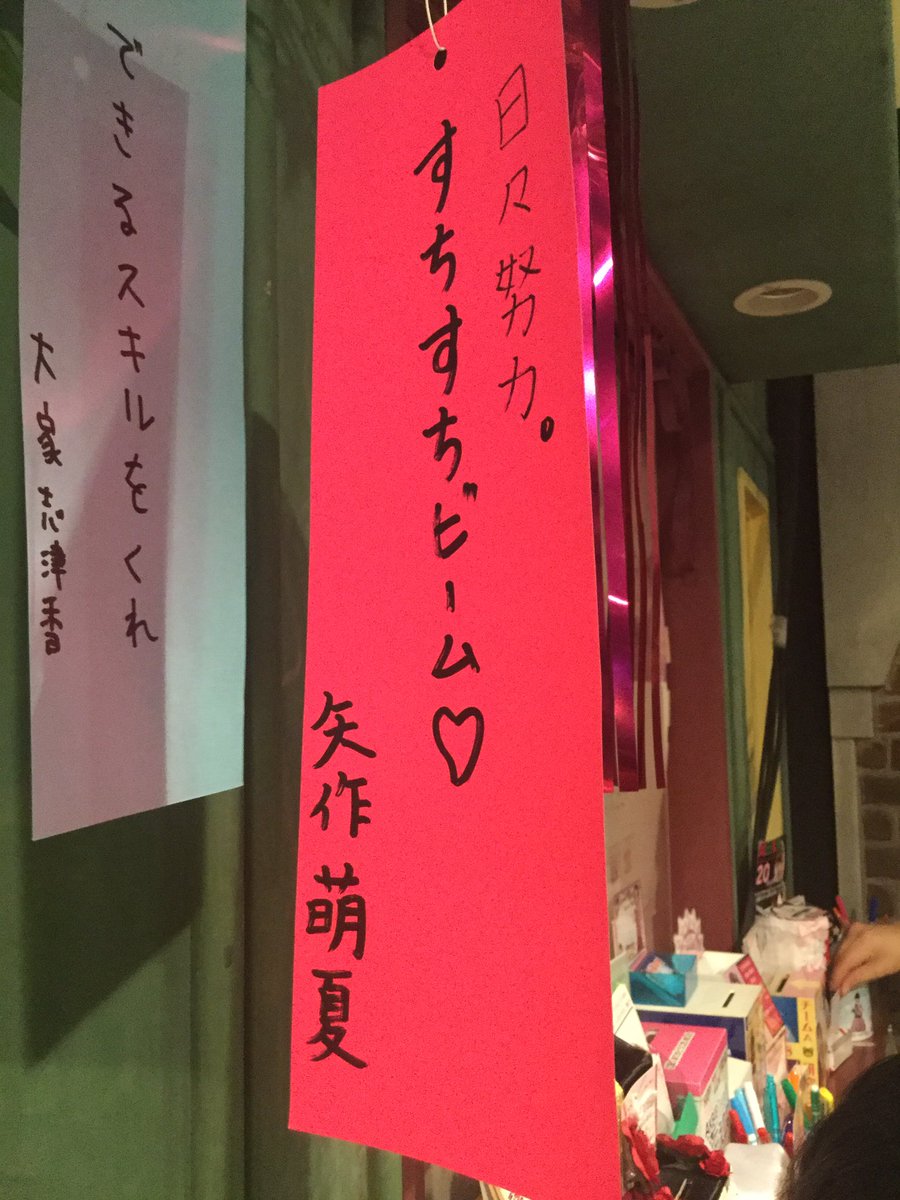 日々努力。
すちすすちビーム♡
矢作萌夏
できるスキルをくれ
大家志津香
チームA
20